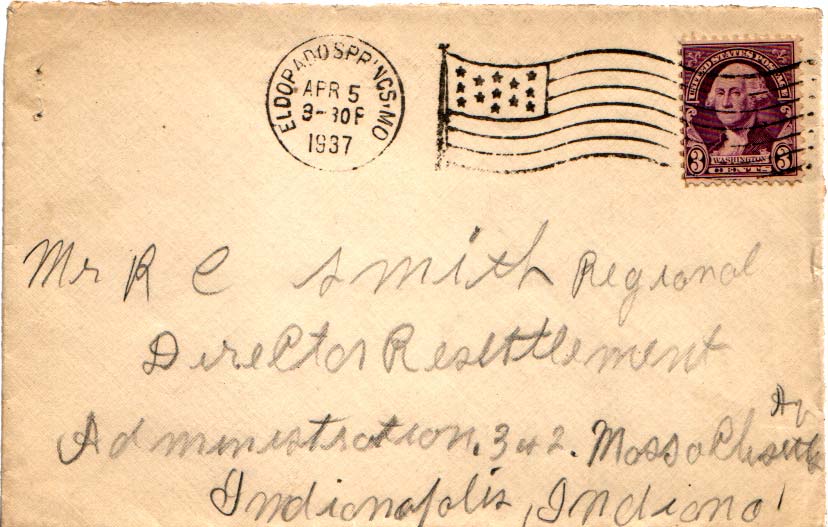 ELDORADO SPRINGS, MO
APR 5
3-30P
1937
UNITED STATES POSTAGE
3 WASHINGTON 3
CENTS
Mr R C Smith Regional
Director Resettlement
Av
Administration. 342. Massachusetts
Indianapolis, Indiana